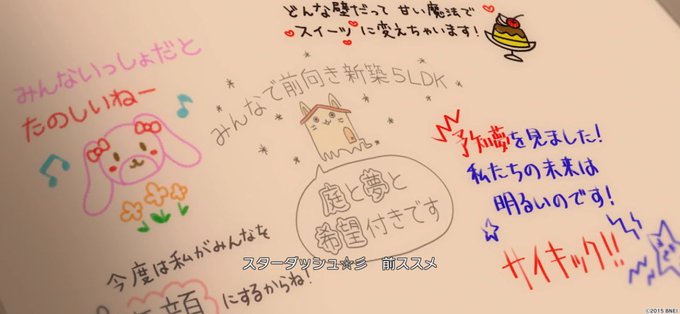 どんな壁だって 甘い魔法で
スイーツに変えちゃいます!
みんないっしょだと
たのしいねー
みんなで前向き新築5LDK
庭と夢と
希望付きです
予知夢を見ました!
私たちの未来は
明るいのです!
サイキック!!
今度は私がみんなを
顔にするからね!
スターダッシュ☆彡 前ススメ
©2015 BNEI